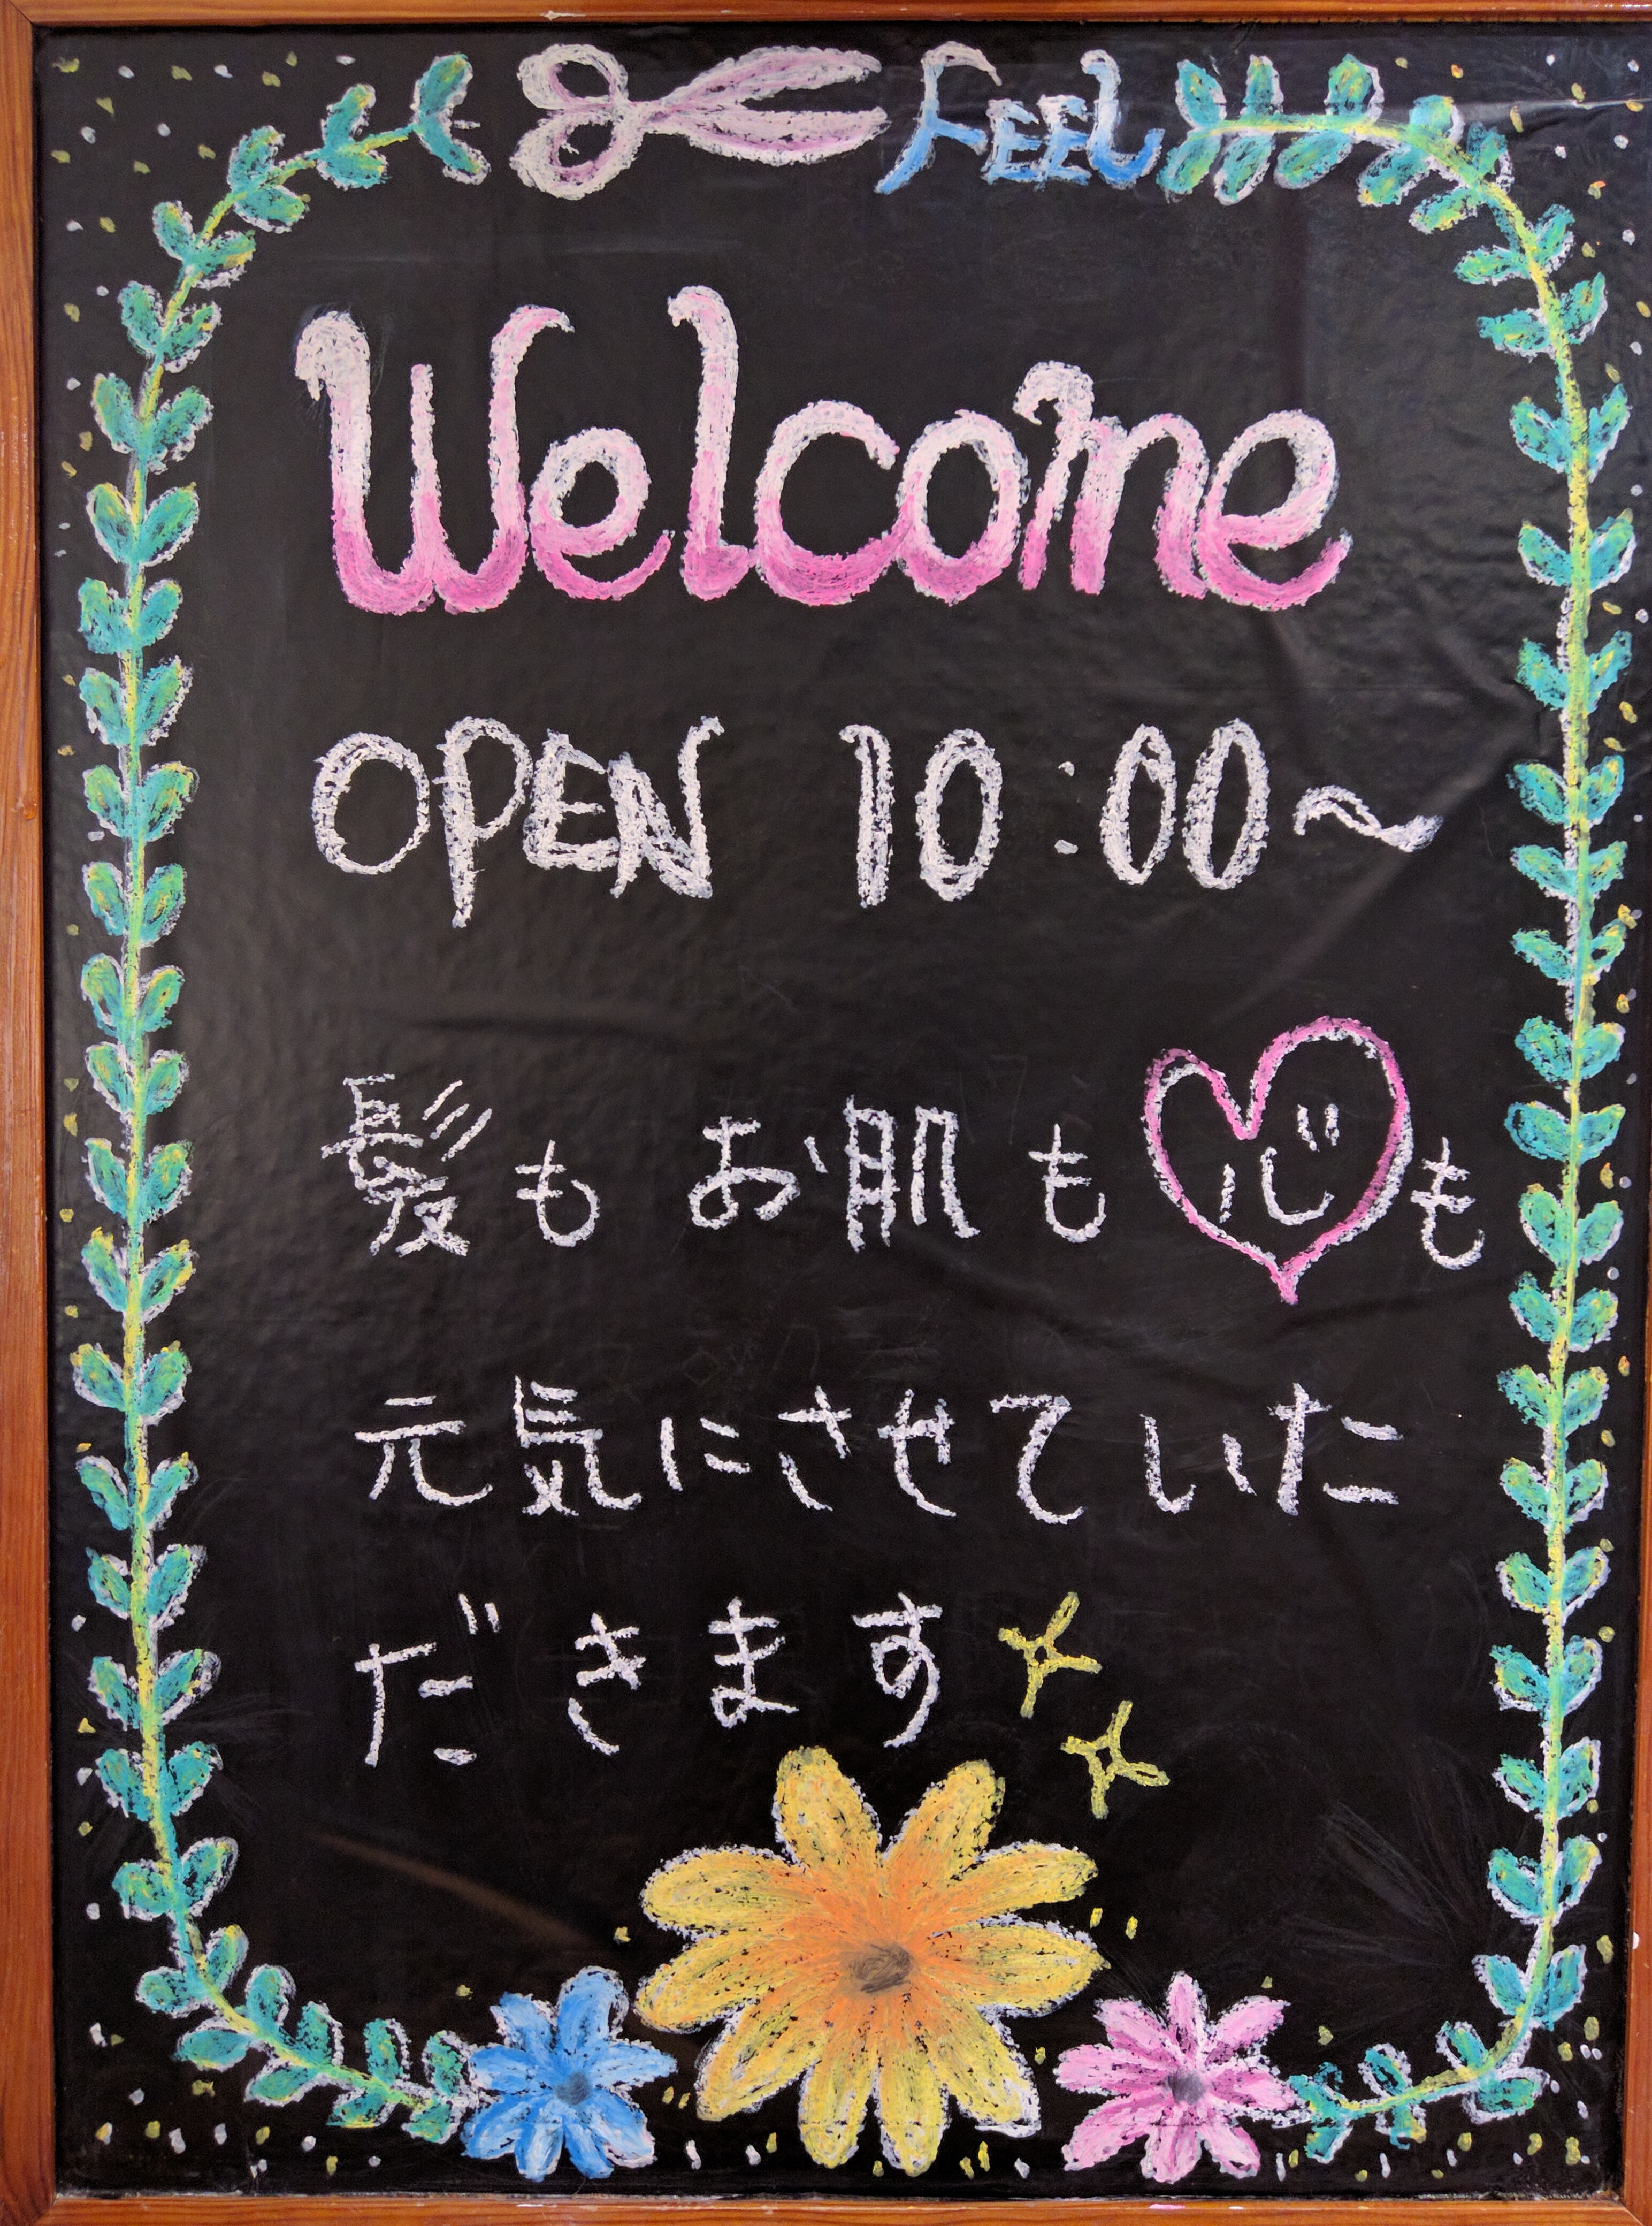 FEEL
Welcome
OPEN 10:00～
髪も お肌も 心も
元気にさせていた
だきます